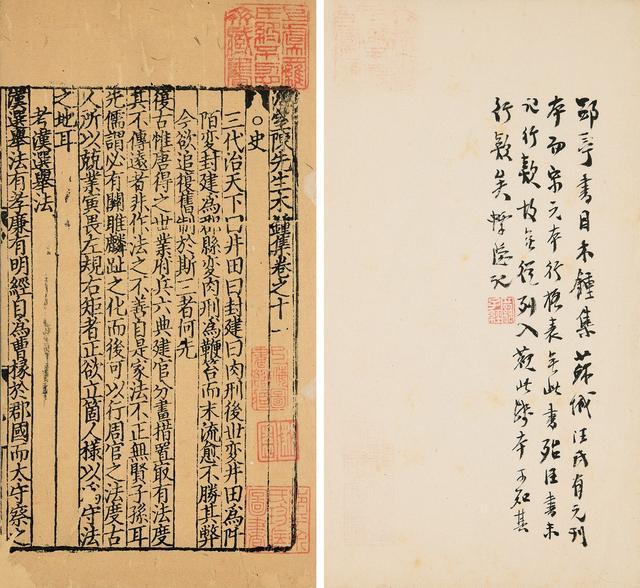 潛室陳先生木鍾集卷之十一
○史
三代治天下曰井田曰封建曰肉刑後世變井田為阡
陌變封建為郡縣變肉刑為鞭笞而末流愈不勝其弊
今欲追復舊制於斯三者何先
復古惟唐得之世業府兵六典建官分畫措置取有法度
其不傳遠者非作法之不善自是家法不正無賢子孫耳
先儒謂必有關雎麟趾之化而後可以行周官之法度古
人所以兢業寅畏左規右矩者正欲立箇人樣以為守法
之地耳
考漢選舉法
漢選舉法有孝廉有明經自為曹掾於郡國而太守察之
郘亭書目木鍾集蘇城汪氏有元刊
本而宋元本行格表無此書殆因書未
記行款故無從列入此殘本可知其
行款矣